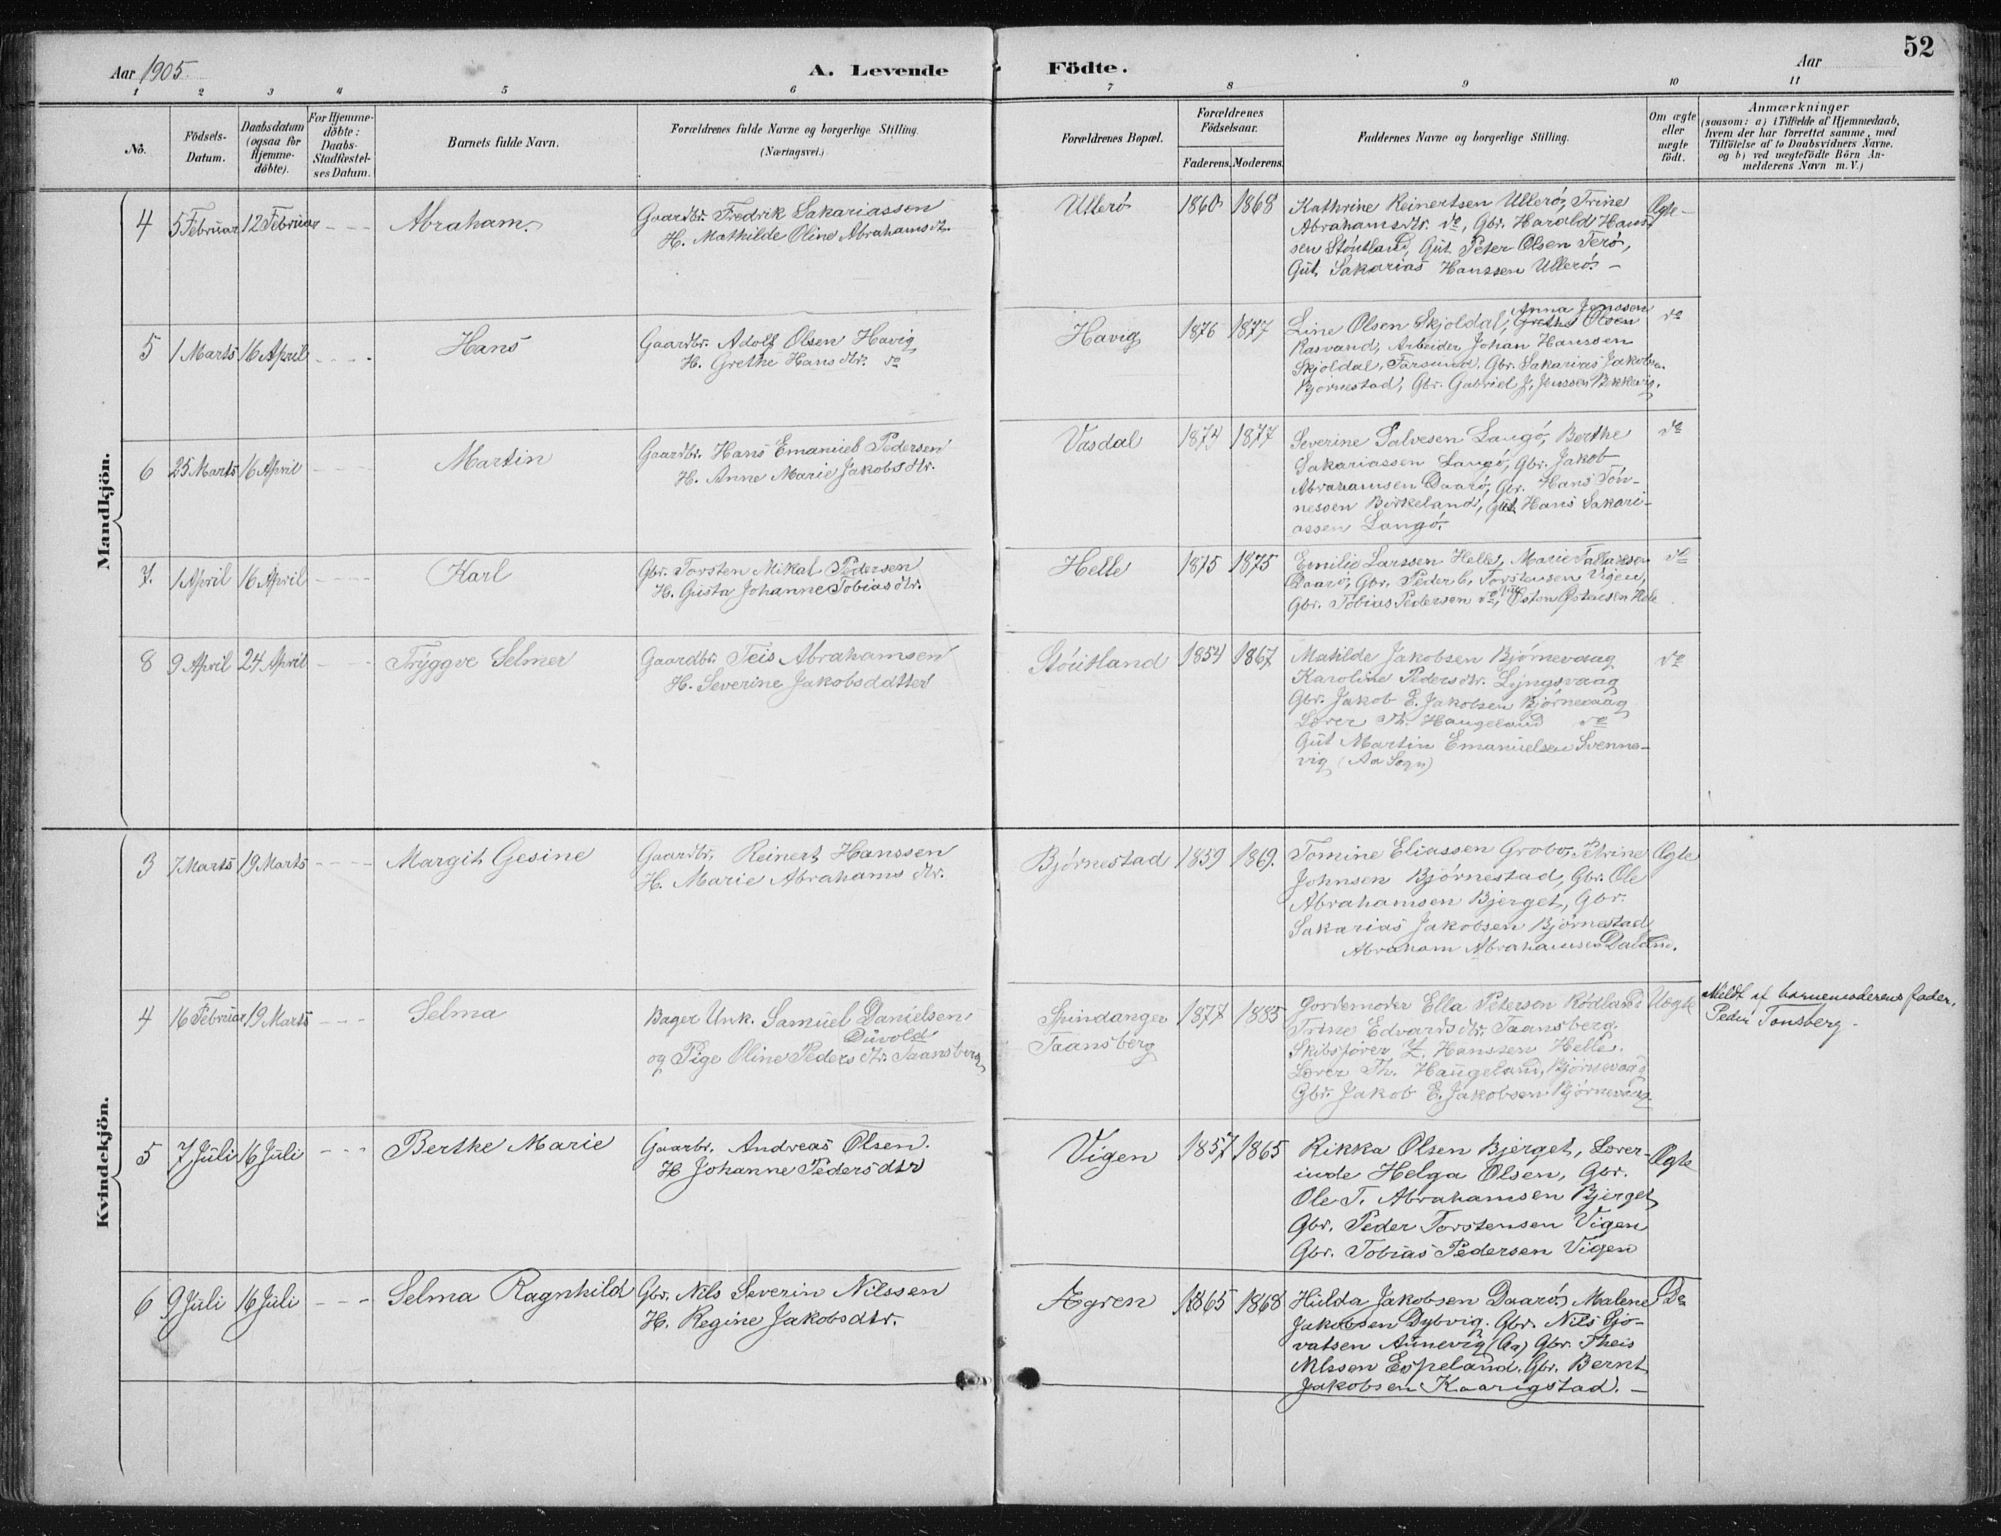 52
Aar 1905.
A. Levende Födte.
Aar
1 2 3 4 5 6 7 8 9 10 11
No.
Födsels-Datum.
Daabsdatum (ogsaa for Hjemme-döbte).
For Hjemme-döbte: Daabs-Stadfæstel-ses Datum.
Barnets fulde Navn.
Forældrenes fulde Navne og borgerlige Stilling.
(Næringsvei.)
Forældrenes Bopæl.
Forældrenes Födselsaar.
Faderens. Moderens.
Faddernes Navne og borgerlige Stilling.
Om ægte eller uægte födt.
Anmærkninger
(saasom: a) i Tilfælde af Hjemmedaab,
hvem der har forrettet samme, med
Tilföielse af to Daabsvidners Navne.
og b) ved uægtefödte Börn An-
melderens Navn m. V.)
Mandkjön.
4 5 Februar 12 Februar - - - Abraham.
Gaardbr. Fredrik Sakariassen
H. Mathilde Oline Abrahamsdtr.
Ullerö 1860 1868
Kathrine Reinertsen Ullerö, Trine
Abrahamsdtr. do, Gbr. Harald Hans-
sen Stöutland, Gut Peter Olsen Terö,
Gut Sakarias Hanssen Ullerö. -
Ægte -
5 1 Marts 16 April - - - Hans
Gaardbr. Adolf Olsen Havig
H. Grethe Hansdtr. do
Havig 1876 1877
Anna Jenssen
Line Olsen Skjoldal, Grethe Olsen
Rasvand, Arbeider Johan Hanssen
Skjoldal, Farsund, Gbr. Sakarias Jakobsen
Bjørnestad, Gbr. Gabriel J. Jenssen
do
6 25 Marts 16 April - - - Martin
Gaardbr. Hans Emanuel Pedersen
H. Anne Marie Jakobsdtr.
Vasdal 1874 1877
Severine Salvesen Langö, Berthe
Sakariassen Langö, Gbr. Jakob
Abrahamsen Daarö, Gbr. Hans Tön-
nessen Birkeland, Gut Hans Sakari-
assen Langö.
do
7. 1 April 16 April - - - Karl
Gbr. Torsten Mikal Pedersen
H. Gusta Johanne Tobiasdtr.
Helle 1875 1875
Emilie Larssen Helle, Marie Tallaksen
Daarö, Gbr. Peder C. Torstensen Vigen,
Gbr. Tobias Pedersen do, Osten Ostensen Helle
do
8 9 April 24 April - - - Tryggve Selmer
Gaardbr. Teis Abrahamsen
H. Severine Jakobsdatter
Stöutland 1854 1867
Matilde Jakobsen Bjørnevaag
Karoline Pedersdtr. Lyngsvaag
Gbr. Jakob E. Jakobsen Bjørnevaag
Lærer Th. Haugeland do
Gut Martin Emanuelsen Svenne-
vig (Aa Sogn)
do
Kvindekjön.
3 7 Marts 19 Marts - - - Margit Gesine
Gaardbr. Reinert Hanssen
H. Marie Abrahamsdtr.
Bjørnestad 1859 1869.
Tomine Eliassen Grobo, Petrine
Johnsen Bjørnestad, Gbr. Ole
Abrahamsen Bjerget, Gbr.
Sakarias Jakobsen Bjørnestad
Abraham Abrahamsen
Ægte
4 16 Februar 19 Marts - - - Selma
Bager Unk. Samuel Danielsen
Düvold
og Pige Oline Pedersdtr. Taansberg
Spindanger
Taansberg
1877 1885
Gordemoder Ella Petersen Rödland
Trine Edvardsdtr. Taansberg.
Skibsfører Z. Hanssen Helle.
Lærer Th. Haugeland, Bjørnevaag
Gbr. Jakob E. Jakobsen Bjørnevaag.
Uægte
Meldt af barnemoderens fader.
Peder Tonsberg.
5 7 Juli 16 Juli - - - Berthe Marie
Gaarbr. Andreas Olsen.
H Johanne Pedersdtr
Vigen 1857 1865
Rikka Olsen Bjerget, Lærer-
inde Helga Olsen, Gbr.
Ole T. Abrahamsen Bjerget
Gbr. Peder Torstensen Vigen
Gbr. Tobias Pedersen Vigen
Ægte
6 9 Juli 16 Juli - - - Selma Ragnhild
Gbr. Nils Severin Nilssen
H. Regine Jakobsdtr.
Agren 1865 1868
Hulda Jakobsen Daarö, Malene
Jakobsen Dybvig. Gbr. Nils Sjo-
vatsen Aunevig (Aa) Gbr. Theis
Nilssen Espeland. Gbr. Bernt
Jakobsen Kaarigstad. -
Do